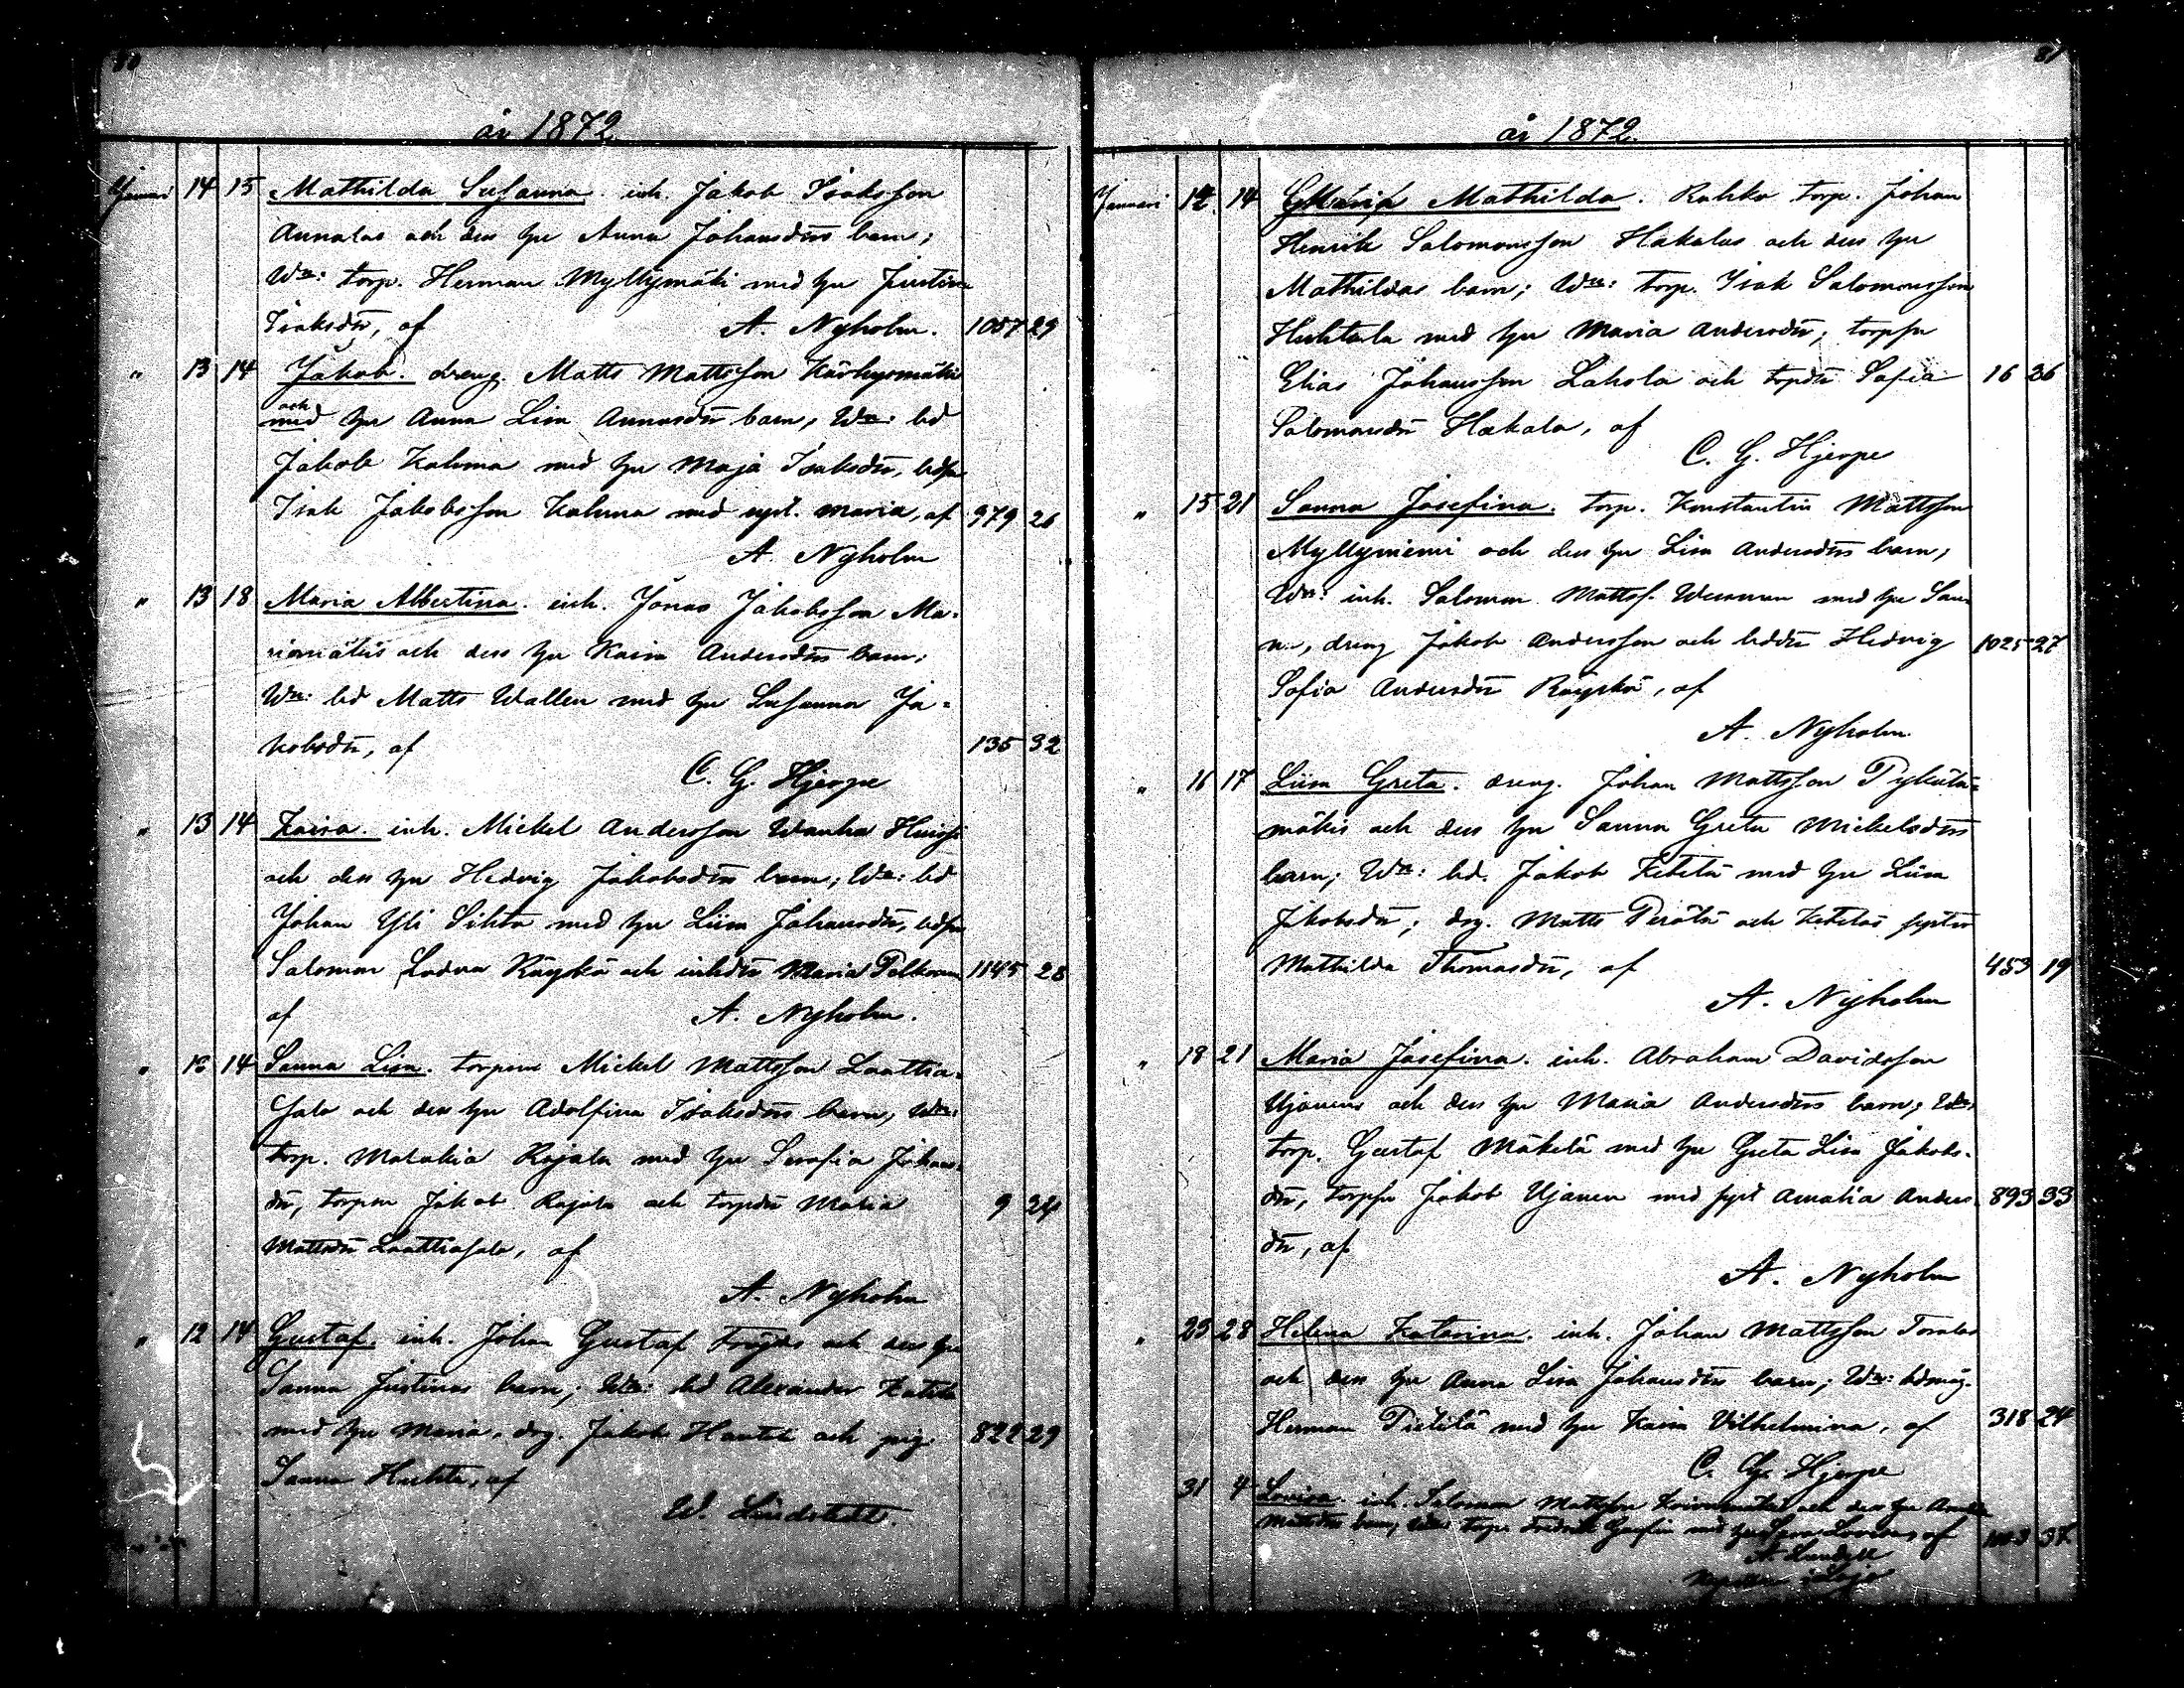 80
år 1872
Januari 14 15 Mathilda Susanna. inh. Jakob Isaksson
Annalas och dess hu Anna Johansdrs barn;
Wn: torp. Herman Myllymäki med hu Justina
Isaksdr, af A. Nyholm. 1057 29
" 13 14 Jakob. dreng. Matts Mattsson
och
med hu Anna Lisa barn, Wn: bd
Jakob Kaluna med hu Maja Isaksdr, bdsn
Isak Jakobsson Kaluna med Maria, af 979 26
A. Nyholm
" 13 18 Maria Albertina. inh. Jonas Jakobsson Ma-
och dess hu Kaisa Andersdrs barn;
Wn: bd Matts Wallen med hu Susanna Ja-
kobsdr, af 135 32
C. G. Hjerpe
" 13 14 Kaisa. inh. Mickel Andersson Wanha
och dess hu Hedvig Jakobsdrs barn; Wn: bd
Johan Yli Sihto med hu Liisa Johansdr, bdsn
Salomon Ladva Räyskä och inhdr Maria 1145 28
af A. Nyholm.
" 14 Sanna Lisa. torparen Mickel Mattsson Laattia-
salo och dess hu Adolfina Isaksdrs barn, Wn:
torp. Malakia Rajala med hu Serafia Johans-
dr, torpsn Jakob Rajala och torpdr Maria 9 24
Mattsdr Laattiasalo, af
A. Nyholm
" 12 14 Gustaf. inh. Johan Gustaf Fröjds och dess hu
Sanna Justinas barn; Wn: bd Alexander
med hu Maria, drg. Jakob och pig.
Sanna Huhta, af 822 29
W. Lindstedt.
81
år 1872.
Januari 12. 14 Maria Mathilda. Rahko torp. Johan
Henrik Salomonsson Hakalas och dess hu
Mathildas barn; Wn: torp. Isak Salomonsson
Huhtala med hu Maria Andersdr, torpsn
Elias Johansson Lahola och torpdr Sofia 16 26
Salomonsdr Hakala, af
C. G. Hjerpe
" 15 21 Sanna Josefina. torp. Konstantin Mattsson
Myllyniemi och dess hu Lisa Andersdrs barn,
Wn: inh. Salomon Mattss. med hu San-
na, dreng Jakob Andersson och bddr Hedvig 1025 27
Sofia Andersdr Räyskä, af
A. Nyholm.
" 16 17 Liisa Greta. dreng. Johan Mattsson
mäkis och dess hu Sanna Greta Mickelsdrs
barn; Wn: bd. Jakob Ketelä med hu Liisa
Jakobsdr; drg. Matts Perälä och Ketelas
Mathilda Thomasdr, af 453 19
A. Nyholm
" 18 21 Maria Josefina. inh. Abraham Davidsson
Ujanens och dess hu Maria Andersdrs barn; Wn:
torp. Gustaf Mäkelä med hu Greta Lisa Jakobs-
dr, torpsn Jakob Ujanen med Amalia Anders- 893 33
dr, af
A. Nyholm
" 25 28 Helena Katarina. inh. Johan Mattsson
och dess hu Anna Lisa Johansdrs barn; Wn:
Herman Pietilä med hu Kaisa Vilhelmina, af 318 24
C. G. Hjerpe
31 4 Lovisa. inh. Salomon Mattsson och dess hu
Mattsdrs barn; Wn: torp. Fredrik med hu af 37